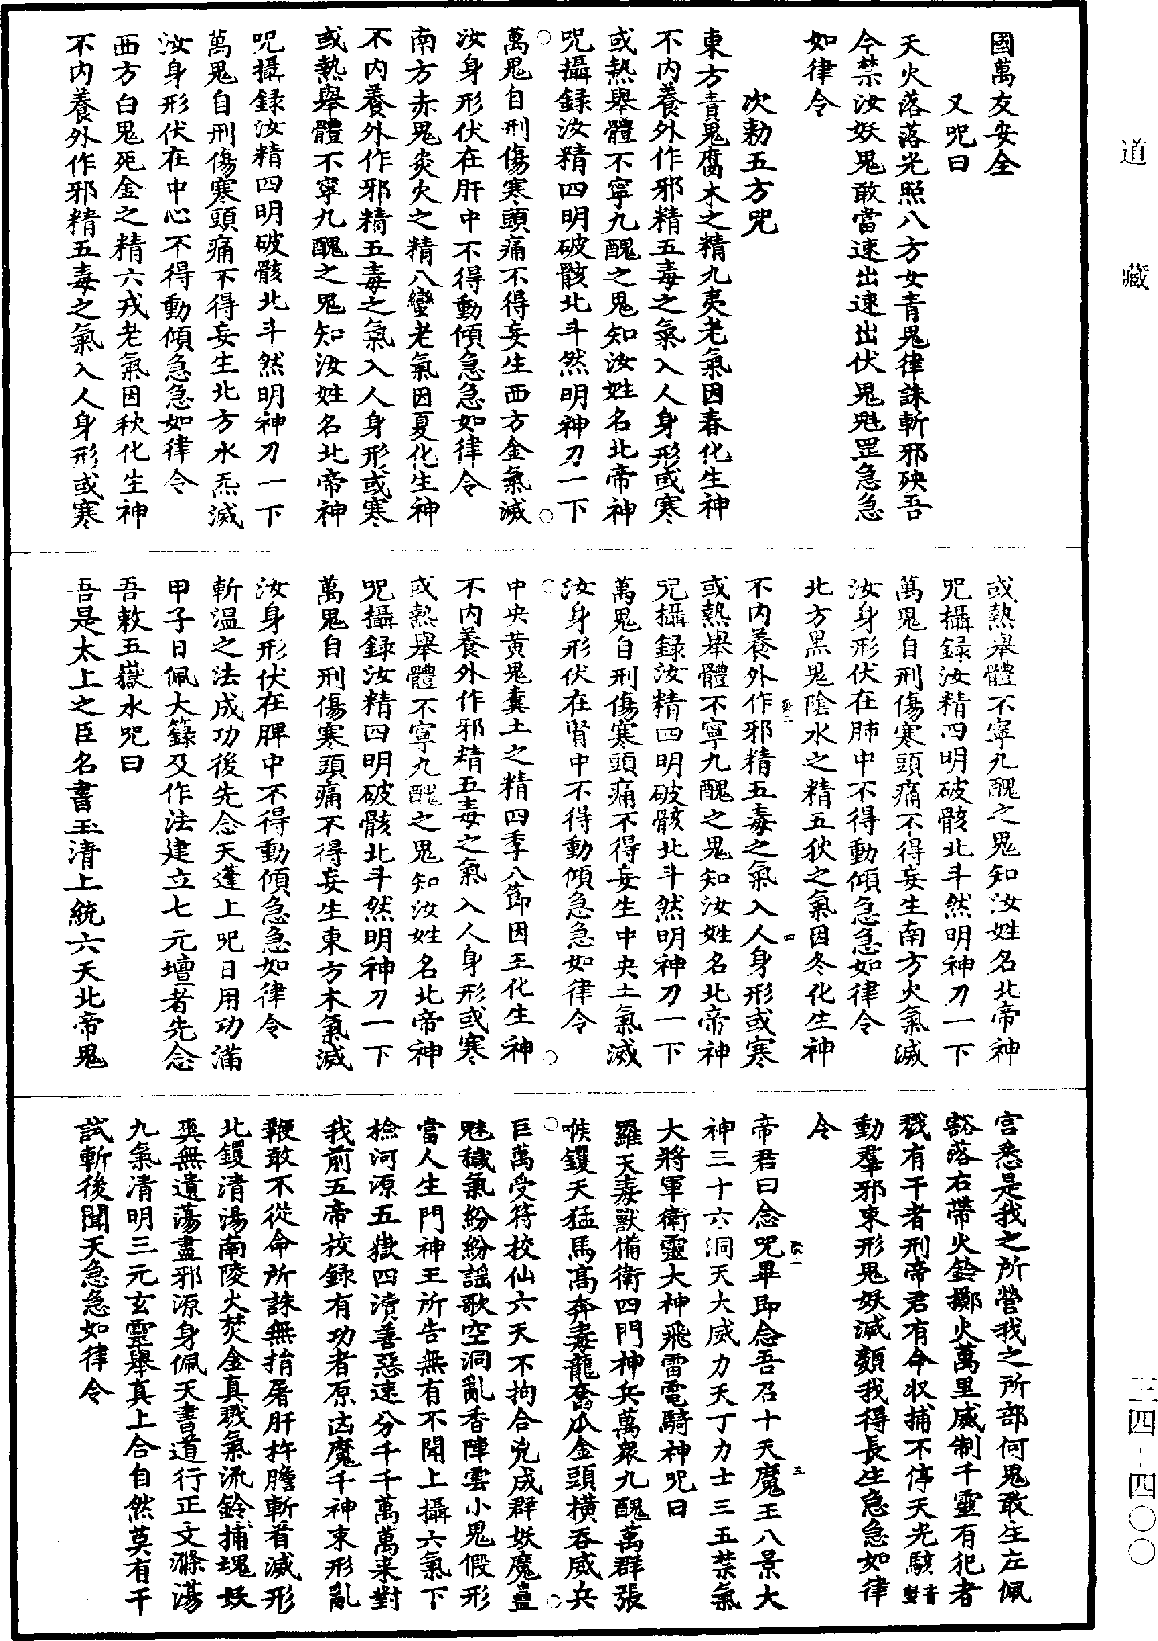 道藏
國萬友安全
又咒曰
天火落落光照八方女青鬼律誅斬邪殃吾
令禁汝妖鬼敢當速出速出伏鬼魁罡急急
如律令
次勅五方咒
東方青鬼腐木之精九夷老氣因春化生神
不内養外作邪精五毒之氣入人身形或寒
或熱舉體不寧九醜之鬼知汝姓名北帝神
咒攝録汝精四明破骸北斗然明神刀一下
萬鬼自刑傷寒頭痛不得妄生西方金氣滅
汝身形伏在肝中不得動傾急急如律令
南方赤鬼炎火之精八蠻老氣因夏化生神
不内養外作邪精五毒之氣入人身形或寒
或熱舉體不寧九醜之鬼知汝姓名北帝神
咒攝録汝精四明破骸北斗然明神刀一下
萬鬼自刑傷寒頭痛不得妄生北方水炁滅
汝身形伏在中心不得動傾急急如律令
西方白鬼死金之精六戎老氣因秋化生神
不内養外作邪精五毒之氣入人身形或寒
或熱舉體不寧九醜之鬼知汝姓名北帝神
咒攝録汝精四明破骸北斗然明神刀一下
萬鬼自刑傷寒頭痛不得妄生南方火氣滅
汝身形伏在肺中不得動傾急急如律令
北方黑鬼陰水之精五狄之氣因冬化生神
不内養外作邪精五毒之氣入人身形或寒
或熱舉體不寧九醜之鬼知汝姓名北帝神
咒攝録汝精四明破骸北斗然明神刀一下
萬鬼自刑傷寒頭痛不得妄生中央土氣滅
汝身形伏在腎中不得動傾急急如律令
中央黄鬼糞土之精四季八節因王化生神
不内養外作邪精五毒之氣入人身形或寒
或熱舉體不寧九醜之鬼知汝姓名北帝神
咒攝録汝精四明破骸北斗然明神刀一下
萬鬼自刑傷寒頭痛不得妄生東方木氣滅
汝身形伏在脾中不得動傾急急如律令
斬温之法成功後先念天蓬上咒日用功滿
甲子日佩大籙及作法建立七元壇者先念
吾敕五嶽水咒曰
吾是太上之臣名書玉清上統六天北帝鬼
官悉是我之所營我之所部何鬼敢生左佩
豁落右帶火鈴擲火萬里威制千靈有犯者
戮有干者刑帝君有命收捕不停天光駭音蟹
動羣邪束形鬼妖滅顡我得長生急急如律
令
帝君曰念咒畢即念吾召十天魔王八景大
神三十六洞天大威力天丁力士三五禁氣
大將軍衛靈大神飛雷電騎神咒曰
羅天毒獸備衛四門神兵萬衆九醜萬群張
喉鑊天猛馬高奔毒龍奮爪金頭横吞威兵
巨萬受符校仙六天不拘合兇成群妖魔蠱
魅穢氣紛紛謡歌空洞亂香陣雲小鬼假形
當人生門神王所告無有不聞上攝六氣下
檢河源五嶽四瀆善惡速分千千萬萬来對
我前五帝校録有功者原凶魔千神束形亂
鞭敢不從命所誅無揞屠肝杵膽斬首滅形
北鑊清湯南陵火焚金真戮氣流鈴捕魂妖
異無遺蕩盡邪源身佩天書道行正文滌蕩
九氣清明三元玄靈舉真上合自然莫有干
試斬後聞天急急如律令
三四-四〇〇